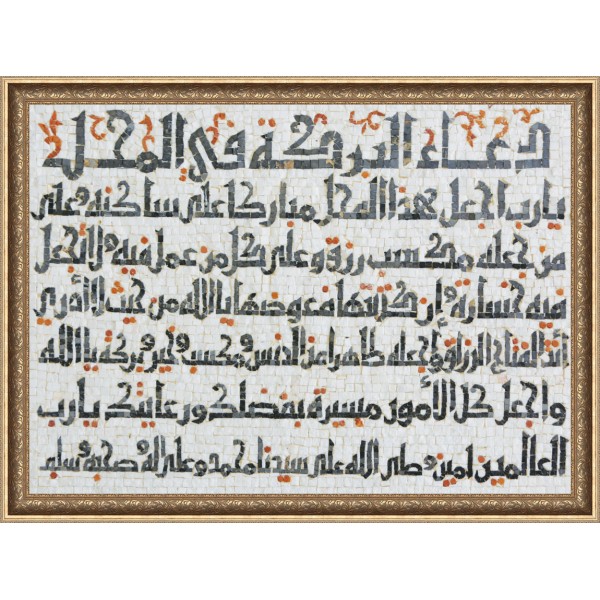 دعاء البركة في المحل
يارب اجعل هذا المحل مباركا على ساكنه وعلى
من جعله مكسب رزق وعلى كل من عمل فيه ولا تجعل
فيه خسارة وإن كتبتها معوضها يا الله من حيث لا أدري
أنت الفتاح الرزاق واجعله طاهرا من الدنس ومكسب وخير وبركة يا الله
واجعل كل الأمور مسيرة بفضلك ورعايتك يارب
العالمين امين وصلى الله على سيدنا محمد وعلى اله وصحبه وسلم